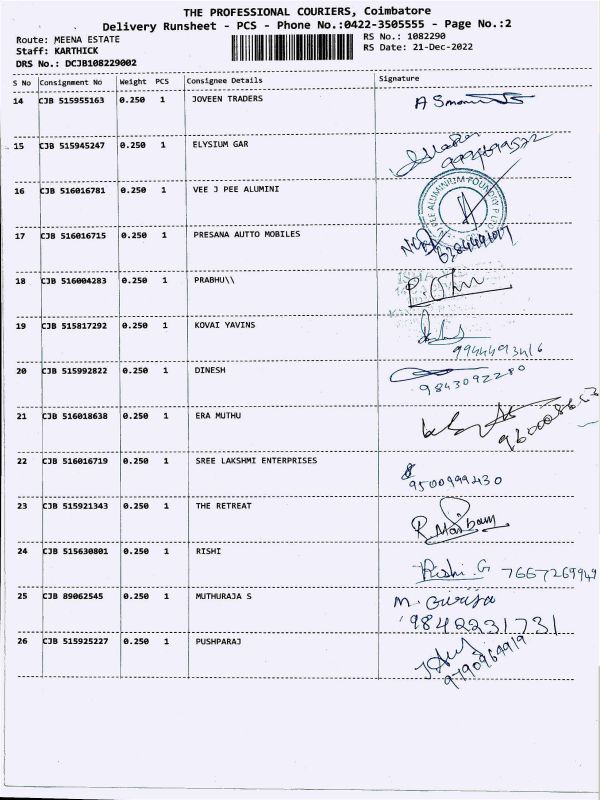 THE PROFESSIONAL COURIERS, Coimbatore
Delivery Runsheet - PCS - Phone No.:0422-3505555 - Page No.:2
Route: MEENA ESTATE RS No.: 1082290
Staff: KARTHICK RS Date: 21-Dec-2022
DRS No.: DCJB108229002
S No Consignment No Weight PCS Consignee Details Signature
14 CJB 515955163 0.250 1 JOVEEN TRADERS
15 CJB 515945247 0.250 1 ELYSIUM GAR
16 CJB 516016781 0.250 1 VEE J PEE ALUMINI
17 CJB 516016715 0.250 1 PRESANA AUTTO MOBILES
18 CJB 516004283 0.250 1 PRABHU\\
19 CJB 515817292 0.250 1 KOVAI YAVINS
9944493416
20 CJB 515992822 0.250 1 DINESH
9843092280
21 CJB 516018638 0.250 1 ERA MUTHU
22 CJB 516016719 0.250 1 SREE LAKSHMI ENTERPRISES
9500999430
23 CJB 515921343 0.250 1 THE RETREAT
24 CJB 515630801 0.250 1 RISHI
Rishi.G 7667269949
25 CJB 89062545 0.250 1 MUTHURAJA S M. Girija
9842231731
26 CJB 515925227 0.250 1 PUSHPARAJ
9790964919